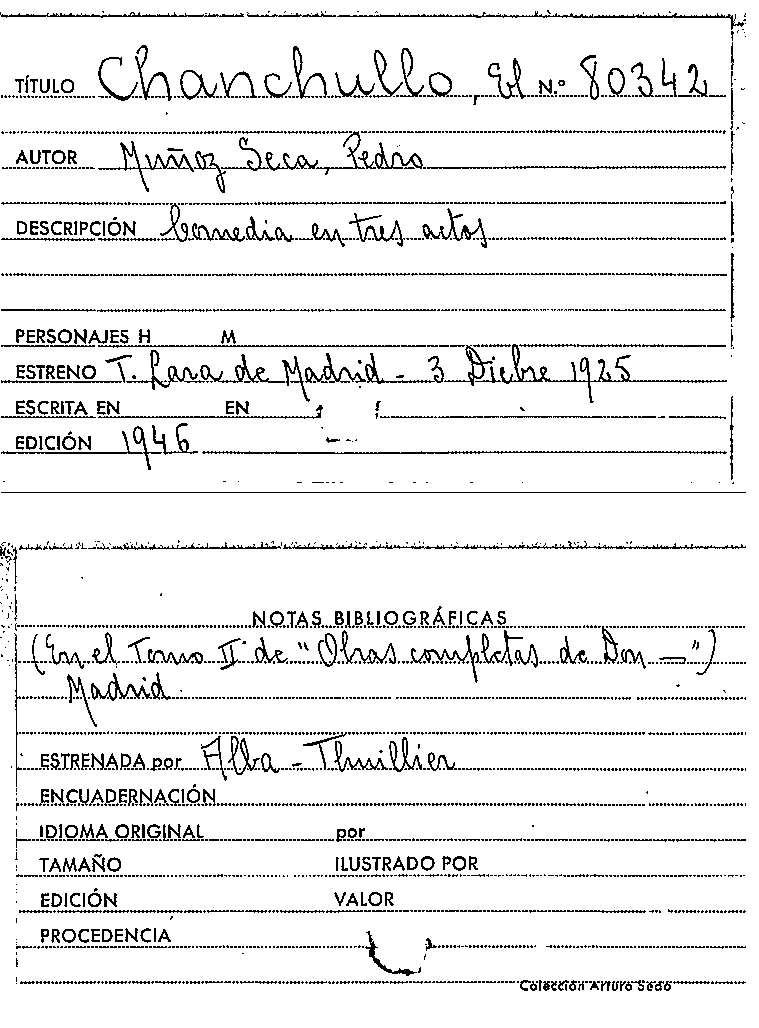 TÍTULO Chanchullo, El N.º 80342
AUTOR Muñoz Seca, Pedro
DESCRIPCIÓN Comedia en tres actos
PERSONAJES H M
ESTRENO T. Lara de Madrid - 3 Dicbre 1925
ESCRITA EN EN
EDICIÓN 1946
NOTAS BIBLIOGRÁFICAS
(En el Tomo II de "Obras completas de Don —")
Madrid
ESTRENADA por Alba - Thuillier
ENCUADERNACIÓN
IDIOMA ORIGINAL por
TAMAÑO ILUSTRADO POR
EDICIÓN VALOR
PROCEDENCIA
Colección Arturo Sedó